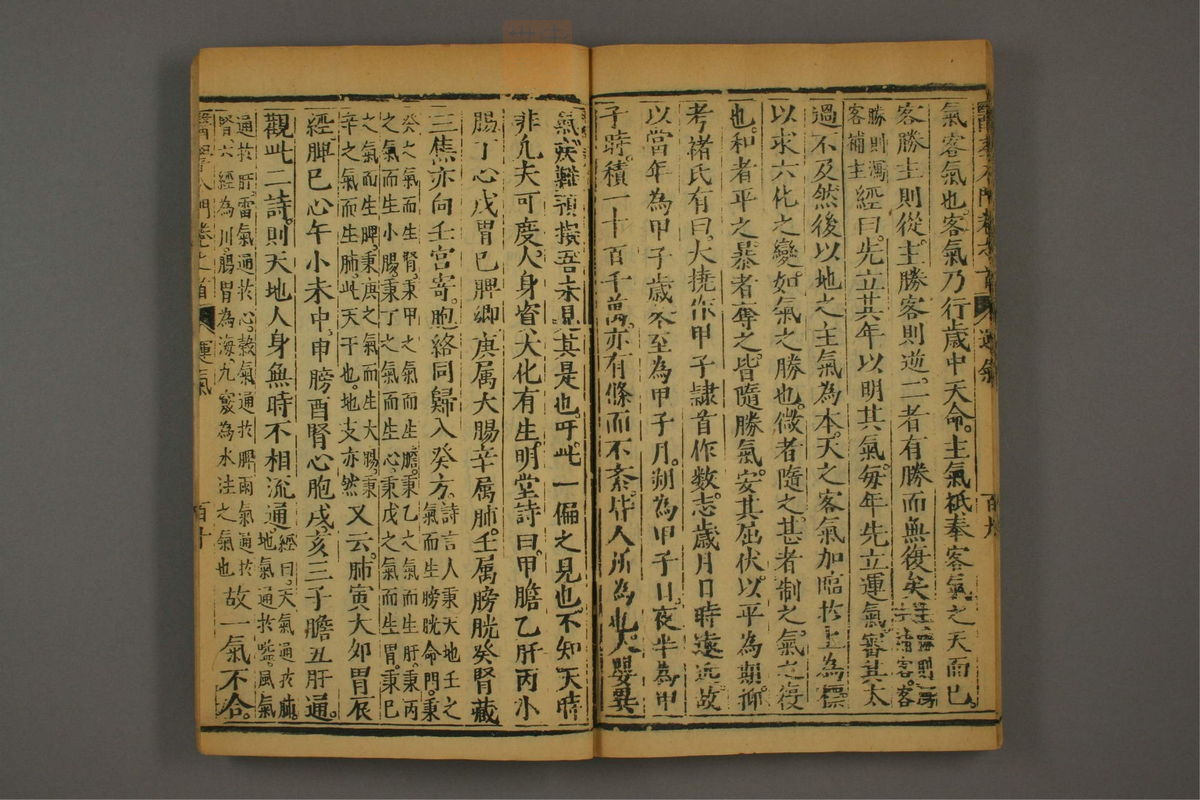 氣客氣也。客氣乃行歲中天命。主氣祇奉客氣之天而已。
客勝主則從。主勝客則逆。二者有勝而無復矣
勝則瀉
客補主
經曰。先立其年以明其氣。每年先立運氣。審其太
過不及。然後以地之主氣為本。天之客氣加臨於上為標。
以求六化之變。如氣之勝也。微者隨之。甚者制之。氣之復
也。和者平之。暴者奪之。皆隨勝氣。安其屈伏。以平為期。抑
考禇氏有曰。大撓作甲子。隷首作数。志歲月日時遠近。故
以當年為甲子歲。冬至為甲子月。朔為甲子日。夜半為甲
子時。積一十百千萬。亦有條而不紊。皆人所為也。人嬰異
氣疾難預按。吾未見其是也。吁。此一偏之見也。不知天時
非凡夫可度。人身皆大化有生。明堂詩曰。甲膽乙肝丙小
腸丁心戊胃巳脾鄉。庚属大腸辛属肺。壬属膀胱癸腎藏
三焦亦向壬宮寄。胞絡同歸入癸方。
詩言人秉天地壬之
氣而生膀胱命門。秉
癸之氣而生腎。秉甲之氣而生膽。秉乙之氣而生肝。秉丙
之氣而生小腸。秉丁之氣而生心。秉戊之氣而生胃。秉巳
之氣而生脾。秉庚之氣而生大腸。秉
辛之氣而生肺。此天干也。地支亦然
又云。肺寅大夘胃辰
經。脾巳心午小未中。申膀酉腎心胞戌。亥三子膽丑肝通。
觀此二詩。則天地人身無時不相流通
經曰。天氣通於肺。
地氣通於嗌。風氣
通於肝。雷氣通於心。穀氣通於脾。雨氣通於
腎。六經為川。腸胃為海。九竅為水注之氣也
故一氣不合。
入門卷之首
運氣
百十